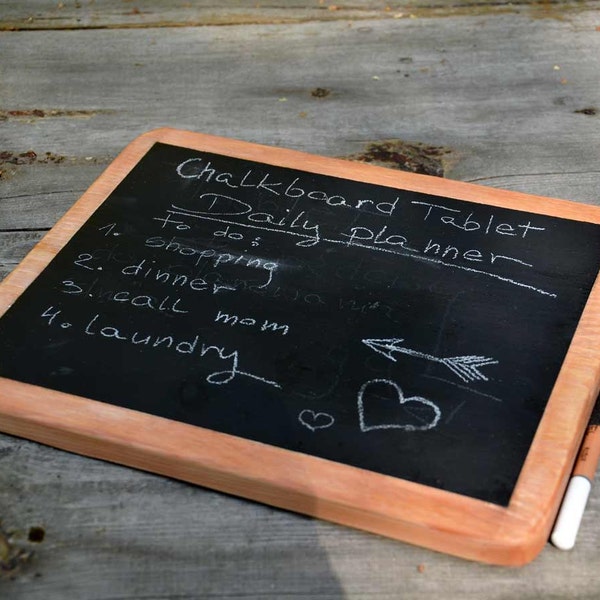 Chalkboard Tablet
Daily planner
To do:
1. shopping
2. dinner
3. call mom
4. laundry